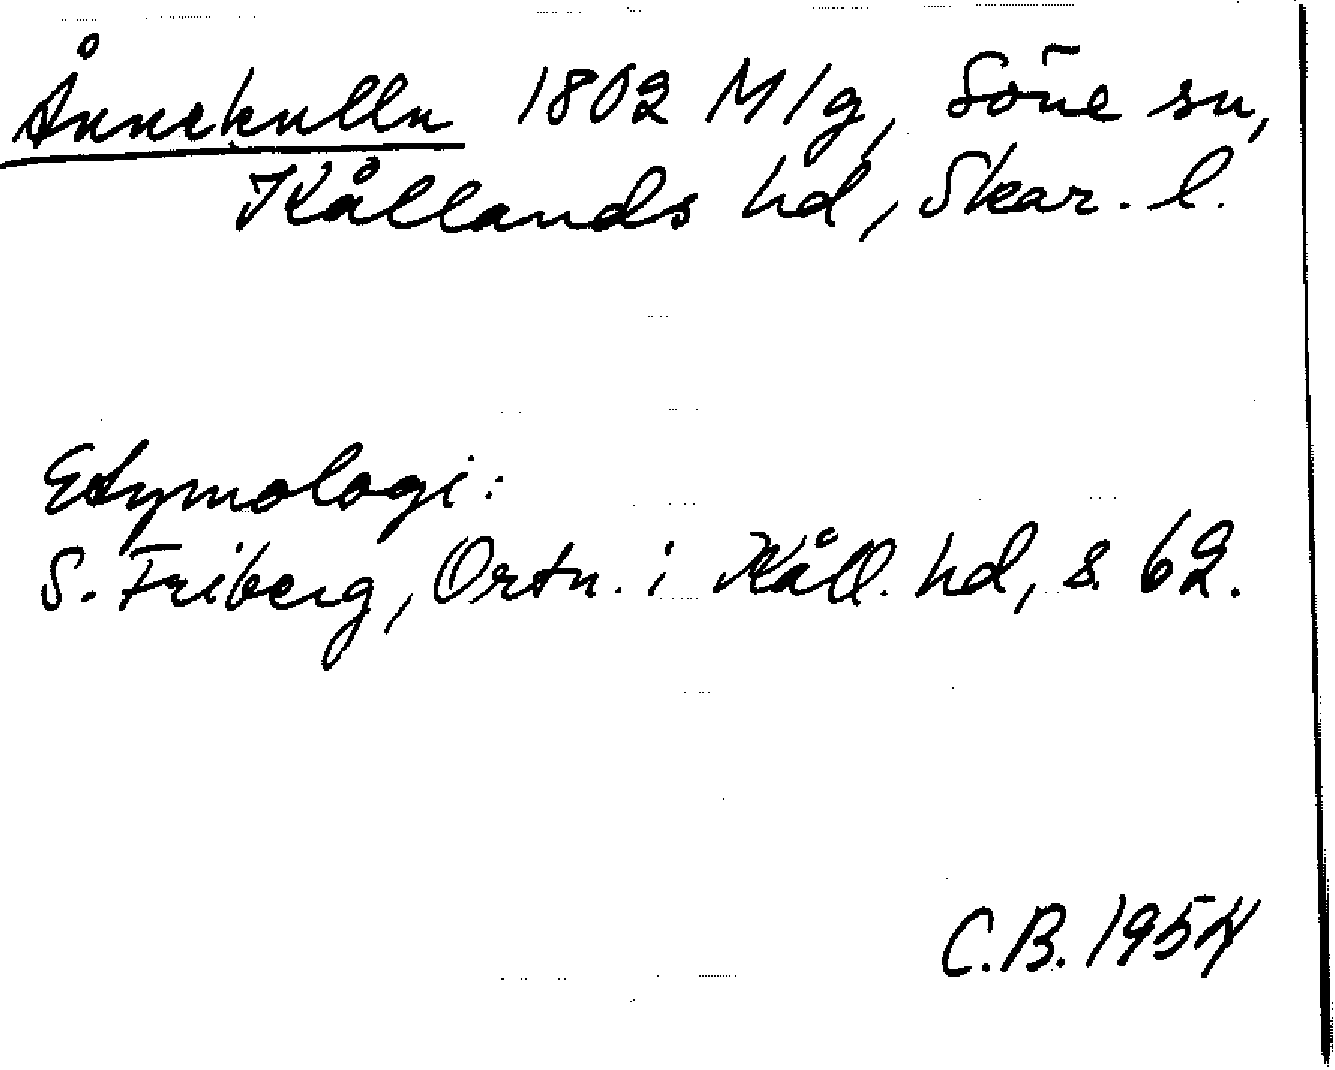 Ånnekulln 1802 M/g, Söne sn,
Kållands hd, Skar. l.
Etymologi:
S. Friberg, Ortn. i Kåll. hd, s. 62.
C.B. 1954